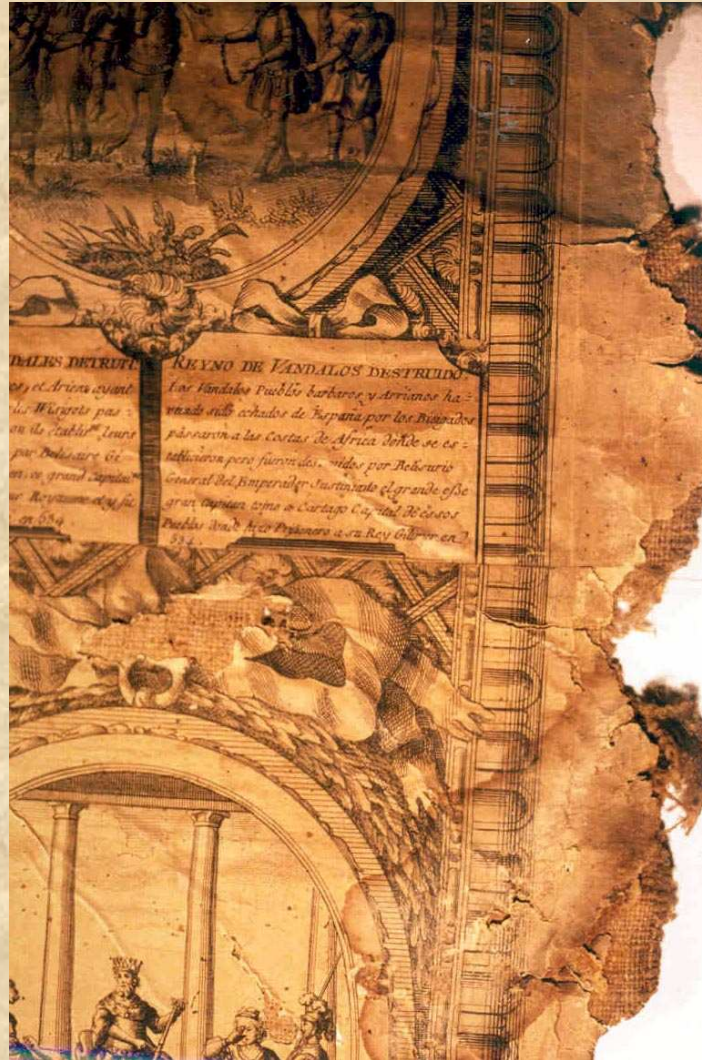 DALES DETRUIT.
es, et Ariens ayant
les Wisigots pas =
ou ils etablirᵗ leurs
par Belisaire Gé
en. ce grand Capitaiⁿᵉ
Royaume et y fit
en 534
REYNO DE VANDALOS DESTRUIDO.
Los Vandalos Pueblos barbaros y Arrianos ha =
viendo sido echados de España por los Bisigodos
passaron a las Costas de Africa donde se es =
tablicieron pero fueron des idos por Belisario
General del Emperador Justiniano el grande esse
gran Capitan tomo a Cartago Capital de essos
Pueblos donde hizo Prisonero a su Rey Gilimer en
534.